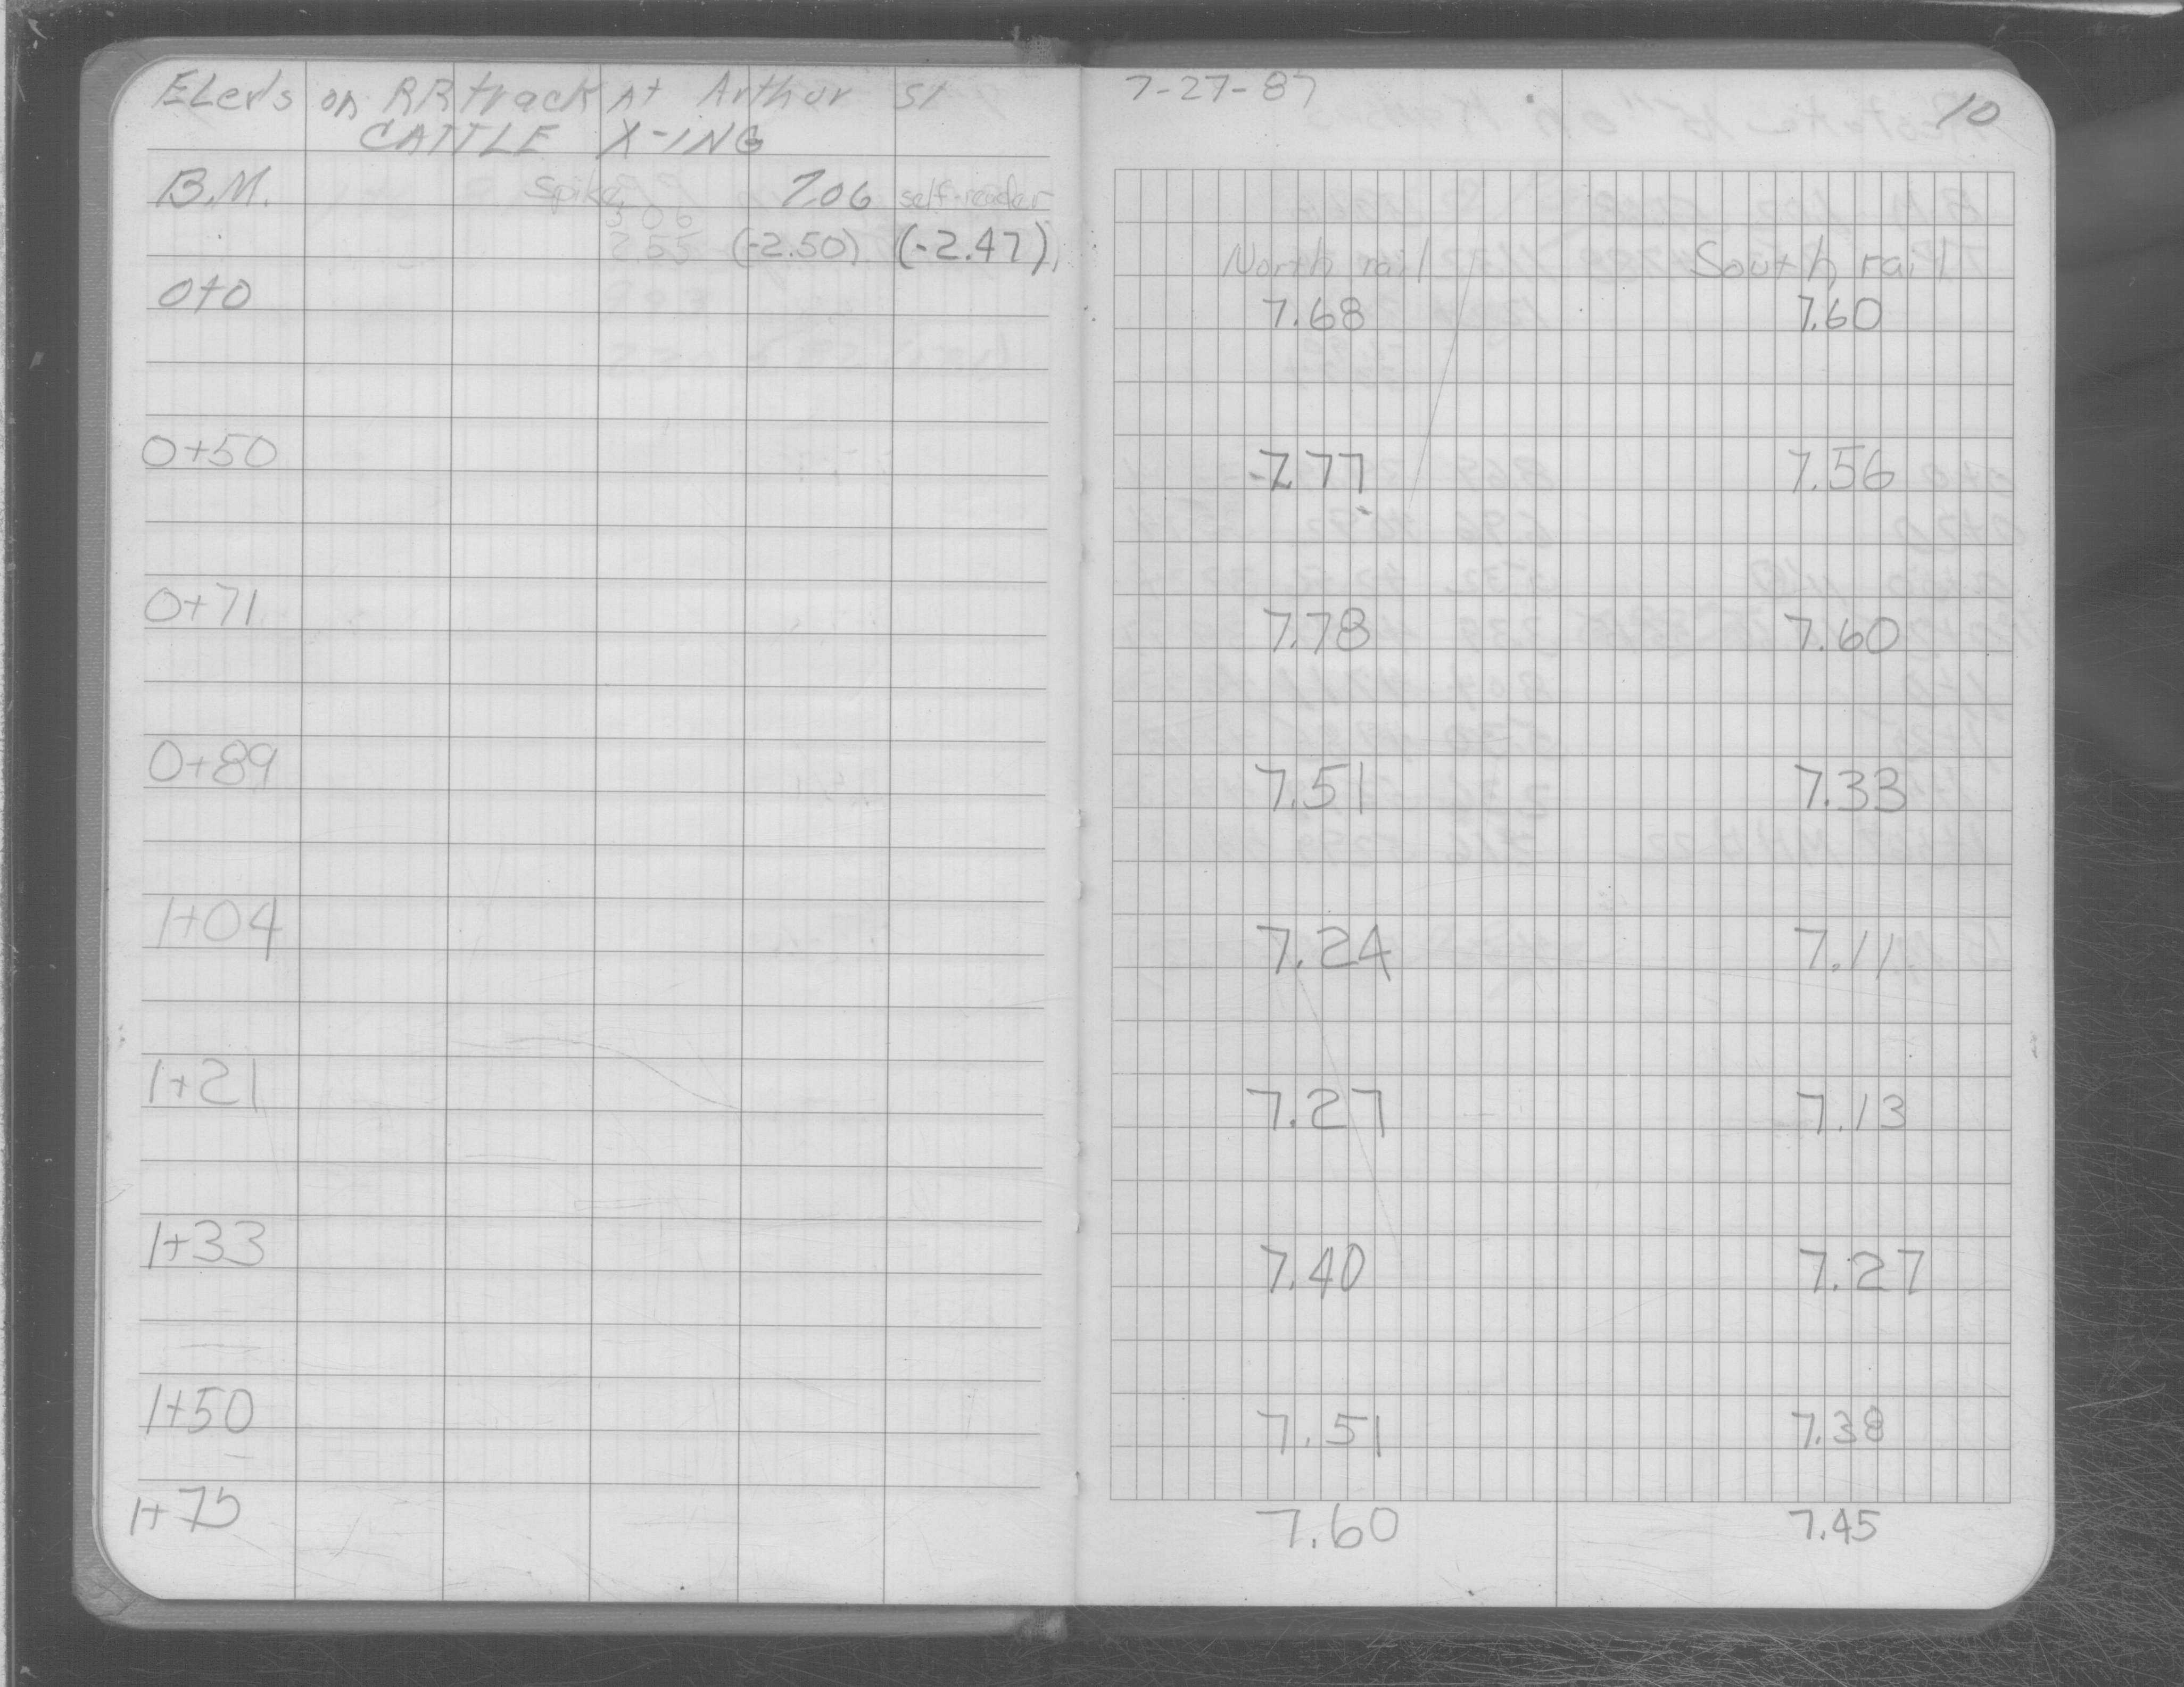 ELev's on RR track At Arthur St
CATTLE X-ING
B.M. Spike 7.06 self-reader
(-2.50) (-2.47)
0+0
0+50
0+71
0+89
1+04
1+21
1+33
1+50
1+75
7-27-87
10
North rail South rail
7.68 7.60
7.77 7.56
7.78 7.60
7.51 7.33
7.24 7.11
7.27 7.13
7.40 7.27
7.51 7.38
7.60 7.45